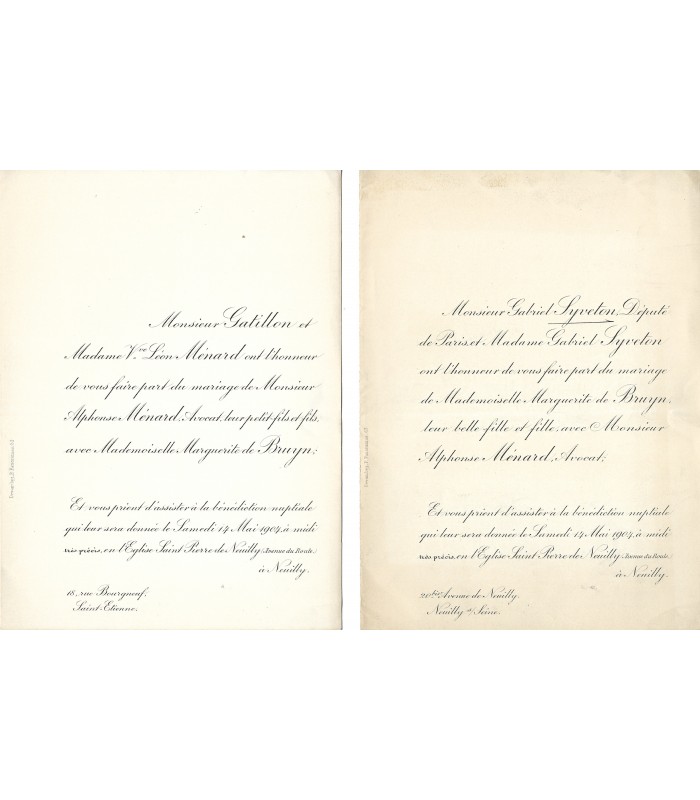 Monsieur Gatillon et
Madame Vve Léon Ménard ont l'honneur
de vous faire part du mariage de Monsieur
Alphonse Ménard, Avocat, leur petit-fils et fils,
avec Mademoiselle Marguerite de Bruyn;
Et vous prient d'assister à la bénédiction nuptiale
qui leur sera donnée le Samedi 14 Mai 1904, à midi
très précis, en l'Eglise Saint Pierre de Neuilly (Avenue du Roule)
à Neuilly.
18, rue Bourgneuf,
Saint-Etienne.
Monsieur Gabriel Syveton, Député
de Paris, et Madame Gabriel Syveton
ont l'honneur de vous faire part du mariage
de Mademoiselle Marguerite de Bruyn,
leur belle-fille et fille, avec Monsieur
Alphonse Ménard, Avocat;
Et vous prient d'assister à la bénédiction nuptiale
qui leur sera donnée le Samedi 14 Mai 1904, à midi
très précis, en l'Eglise Saint Pierre de Neuilly (Avenue du Roule)
à Neuilly.
20bis Avenue de Neuilly.
Neuilly s/ Seine.